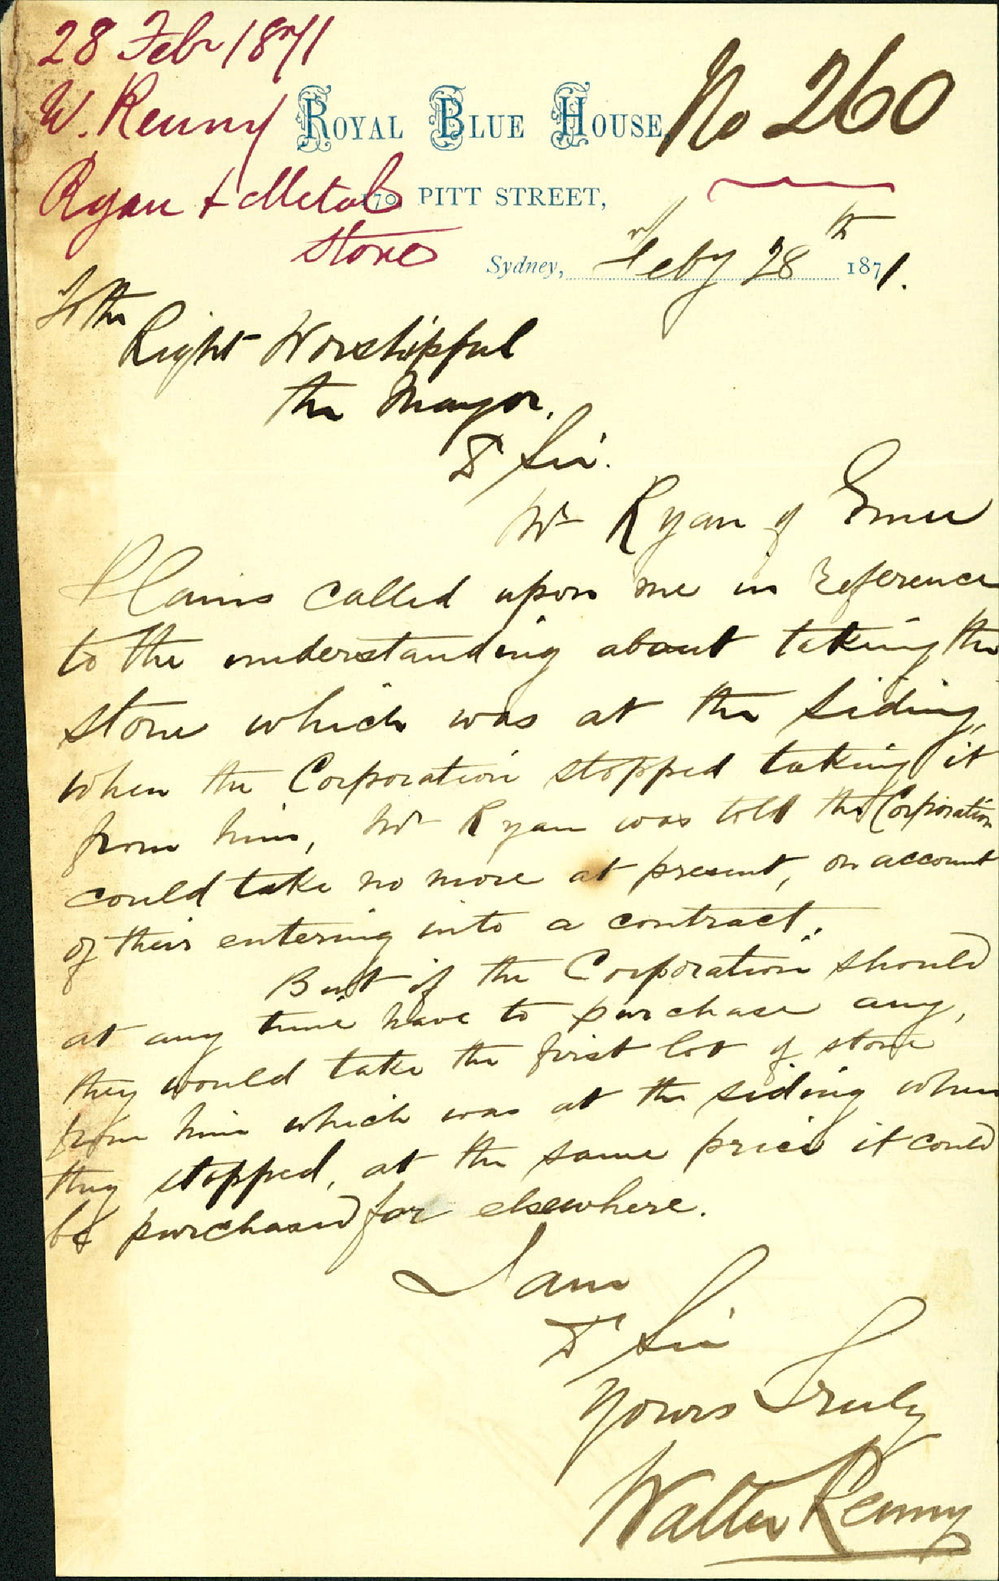 28 Feby 1871
W. Renny
Ryan & Metal
Stone
ROYAL BLUE HOUSE,
No 260
170 PITT STREET,
Sydney, Feby 28th 1871.
To the
Right Worshipful
the Mayor.
Dr Sir.
Mr Ryan of Emu
Plains called upon me in reference
to the understanding about taking the
stone which was at the Siding,
when the Corporation stopped taking it
from him, Mr Ryan was told the Corporation
could take no more at present, on account
of their entering into a contract.
But if the Corporation should
at any time have to purchase any,
they would take the first lot of stone
from him which was at the siding when
they stopped, at the same price it could
be purchased for elsewhere.
I am
Dr Sir
Yours Truly
Walter Renny